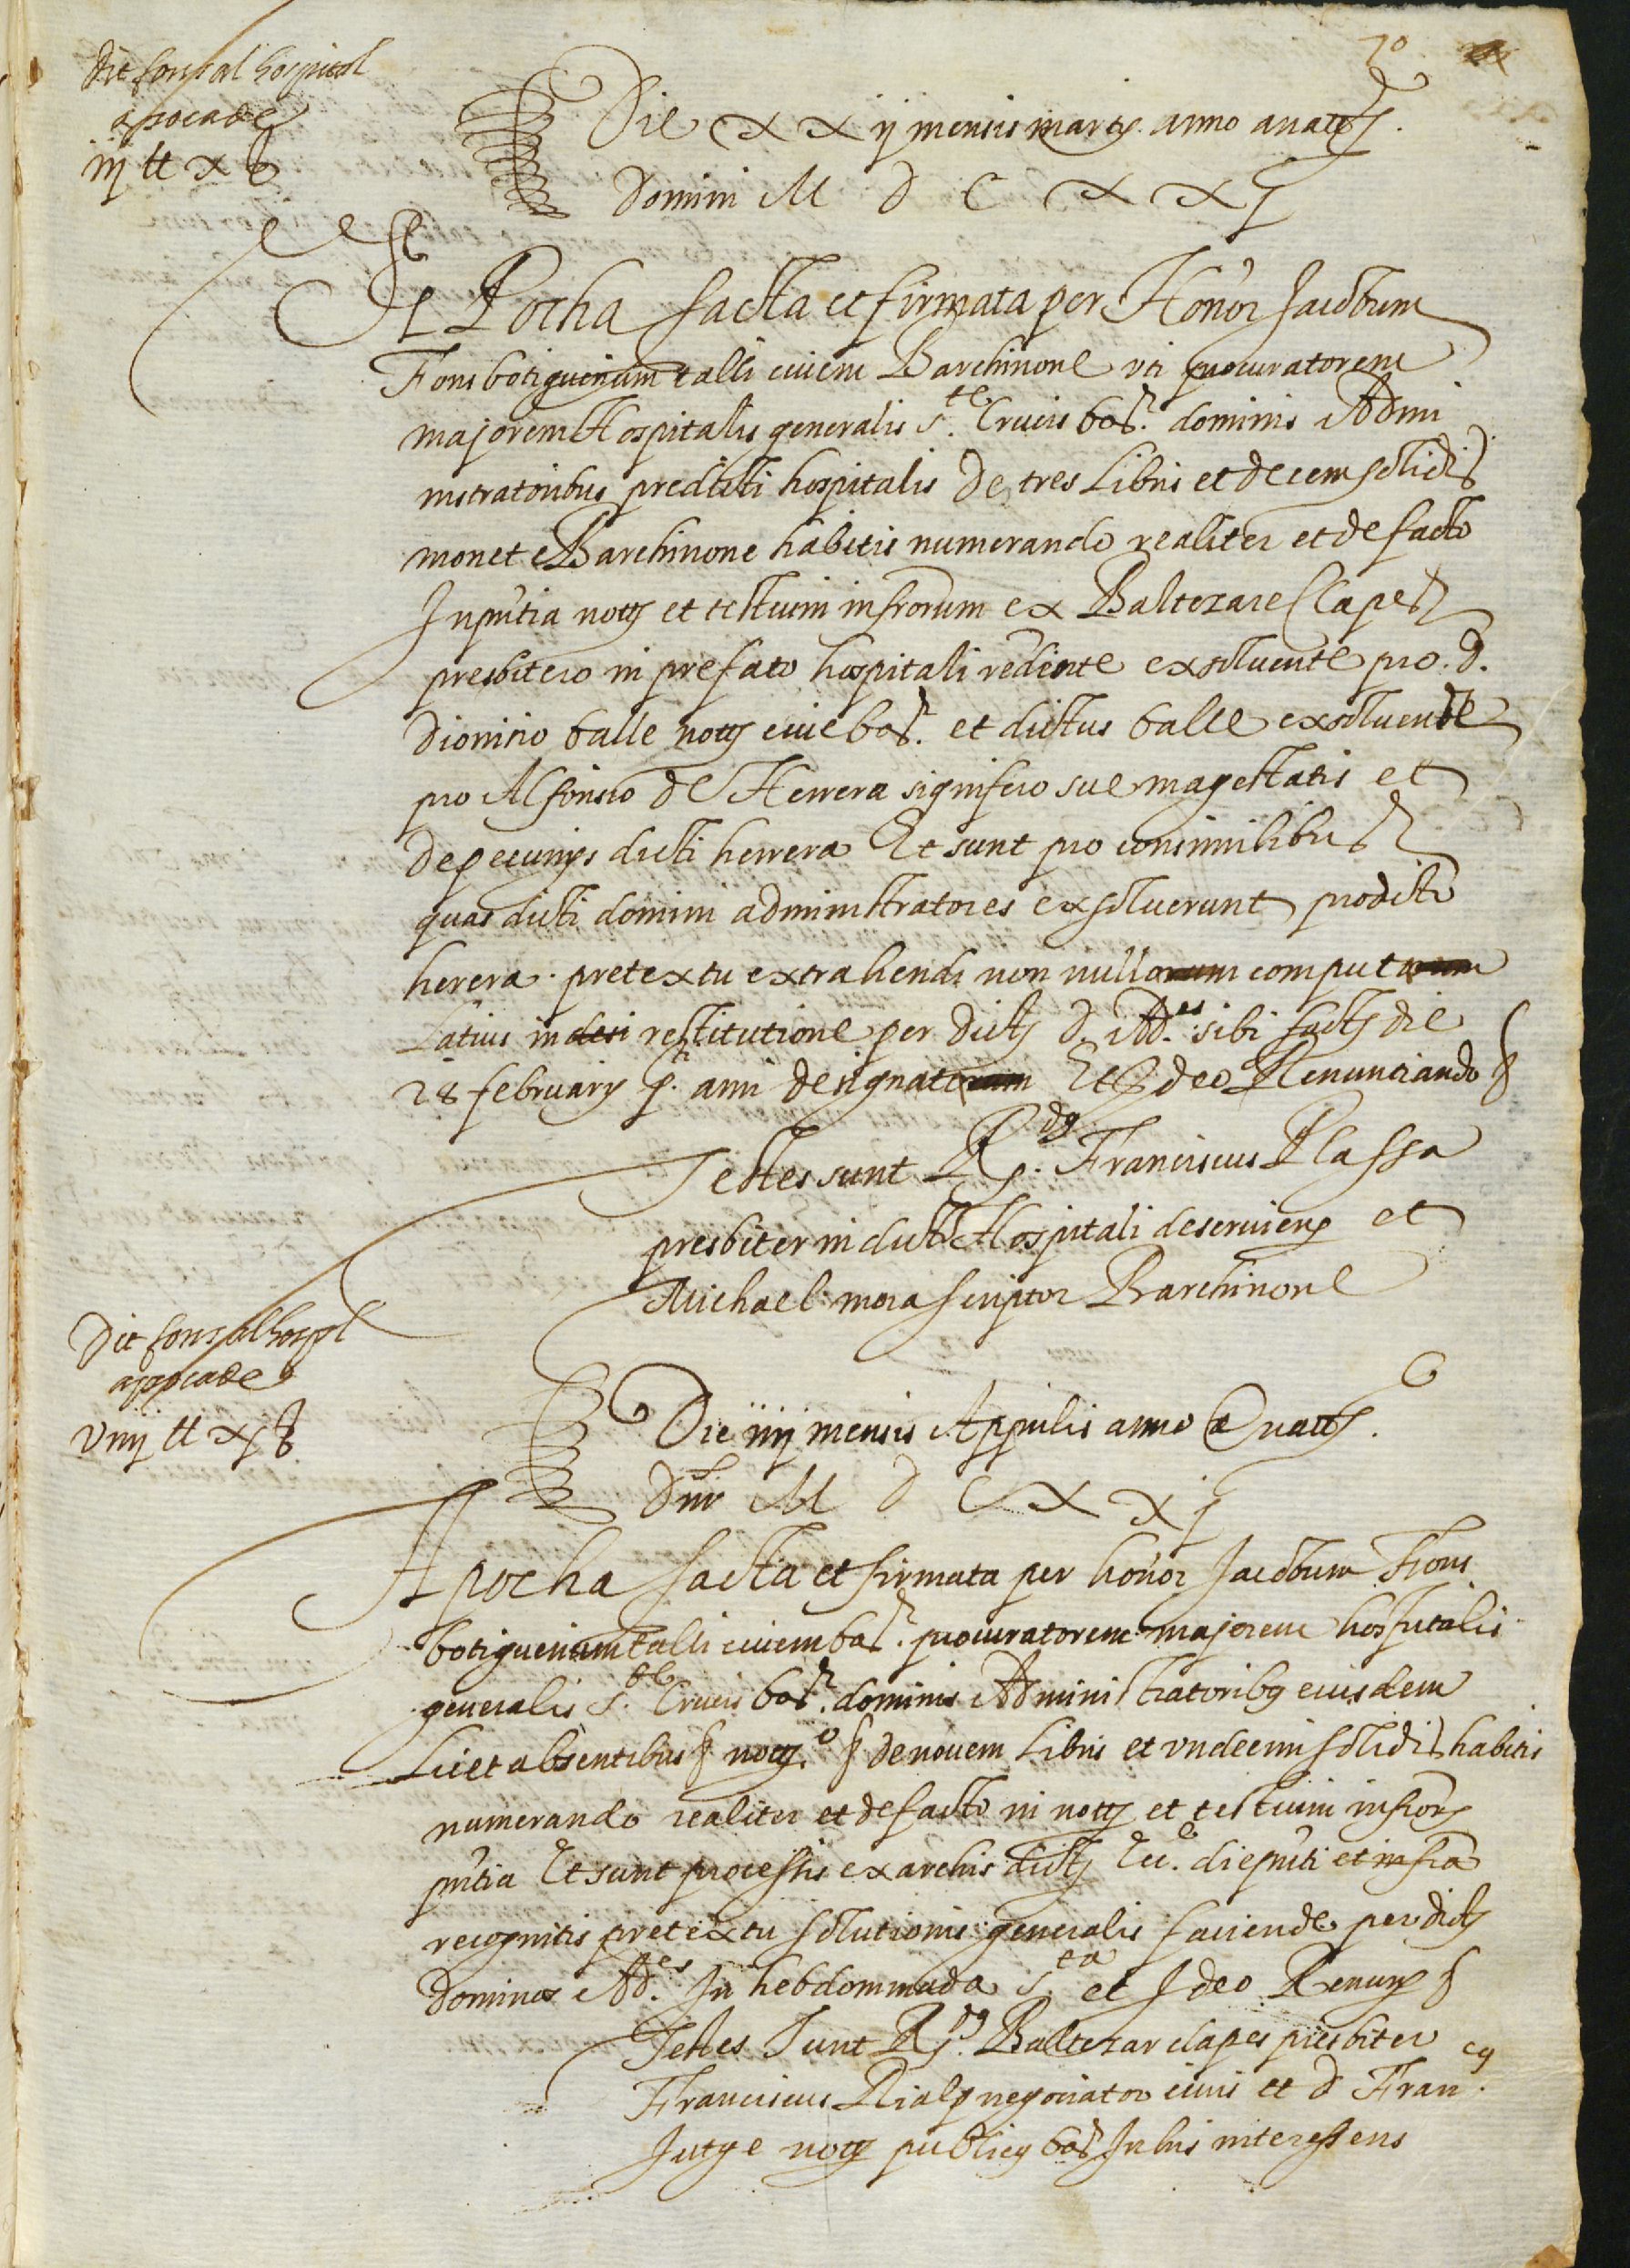 70
Dit fons al hospital
apoca de
iij ℔ x ẞ
Die xxij mensis martij anno a natt.
Domini M D C x x j
APocha facta et firmata per Honor Jacobum
Fons botiguerium talli civem Barchinone uti procuratorem
majorem Hospitalis generalis S.te Crucis bar. dominis Admi
nistratoribus predicti hospitalis de tres Libris et decem solidis
monete Barchinone habitis numerando realiter et de facto
In pntia nots et testium infrorum ex Baltezare Clapes
presbitero in prefato hospitali residente exsolvente pro. d.
Dionisio balle nots cive bar. et dictus balle exsolvente
pro Alfonso de Herrera signifero sue magestatis et
de pecunijs dicti herrera Et sunt pro consimilibus
quas dicti domini administratores exsolverunt pro dicto
herera pretextu extrahendi non nulla computa
Latius in restitutione per dictos d. Ad.es sibi facts die
28 februarij p. anni designat Et Ideo Renunciando §
Testes sunt R.dus Franciscus Plassa
presbiter in dicto Hospitali deserviens et
Michael mora scriptor Barchinone
Dit fons al hospl
appoca de
viiij ℔ xj ẞ
Die iiij mensis Apprilis anno a natt.
Dni M D C x x j
Apocha facta et firmata per honor Jacobum Fons
botiguerium talli civem bar. procuratorem majorem hospitalis
generalis S.te Crucis bar. dominis Administratoribus eiusdem
Licet absentibus § not.o § de novem Libris et undecim solidis habitis
numerando realiter et de facto in nots et testium infrors
pntia Et sunt processis ex archis dicts Ecc.e die pnti et infra
recognitis pretextu solutionis generalis faciende per dicts
Dominos Ad.es In hebdommada S.ta et Ideo Renuns §
Testes Sunt R.dus Baltezar clapes presbiter
Franciscus Rialp negociator civis et d Fran.cus
Jutge nots publicus bar. In his interessens